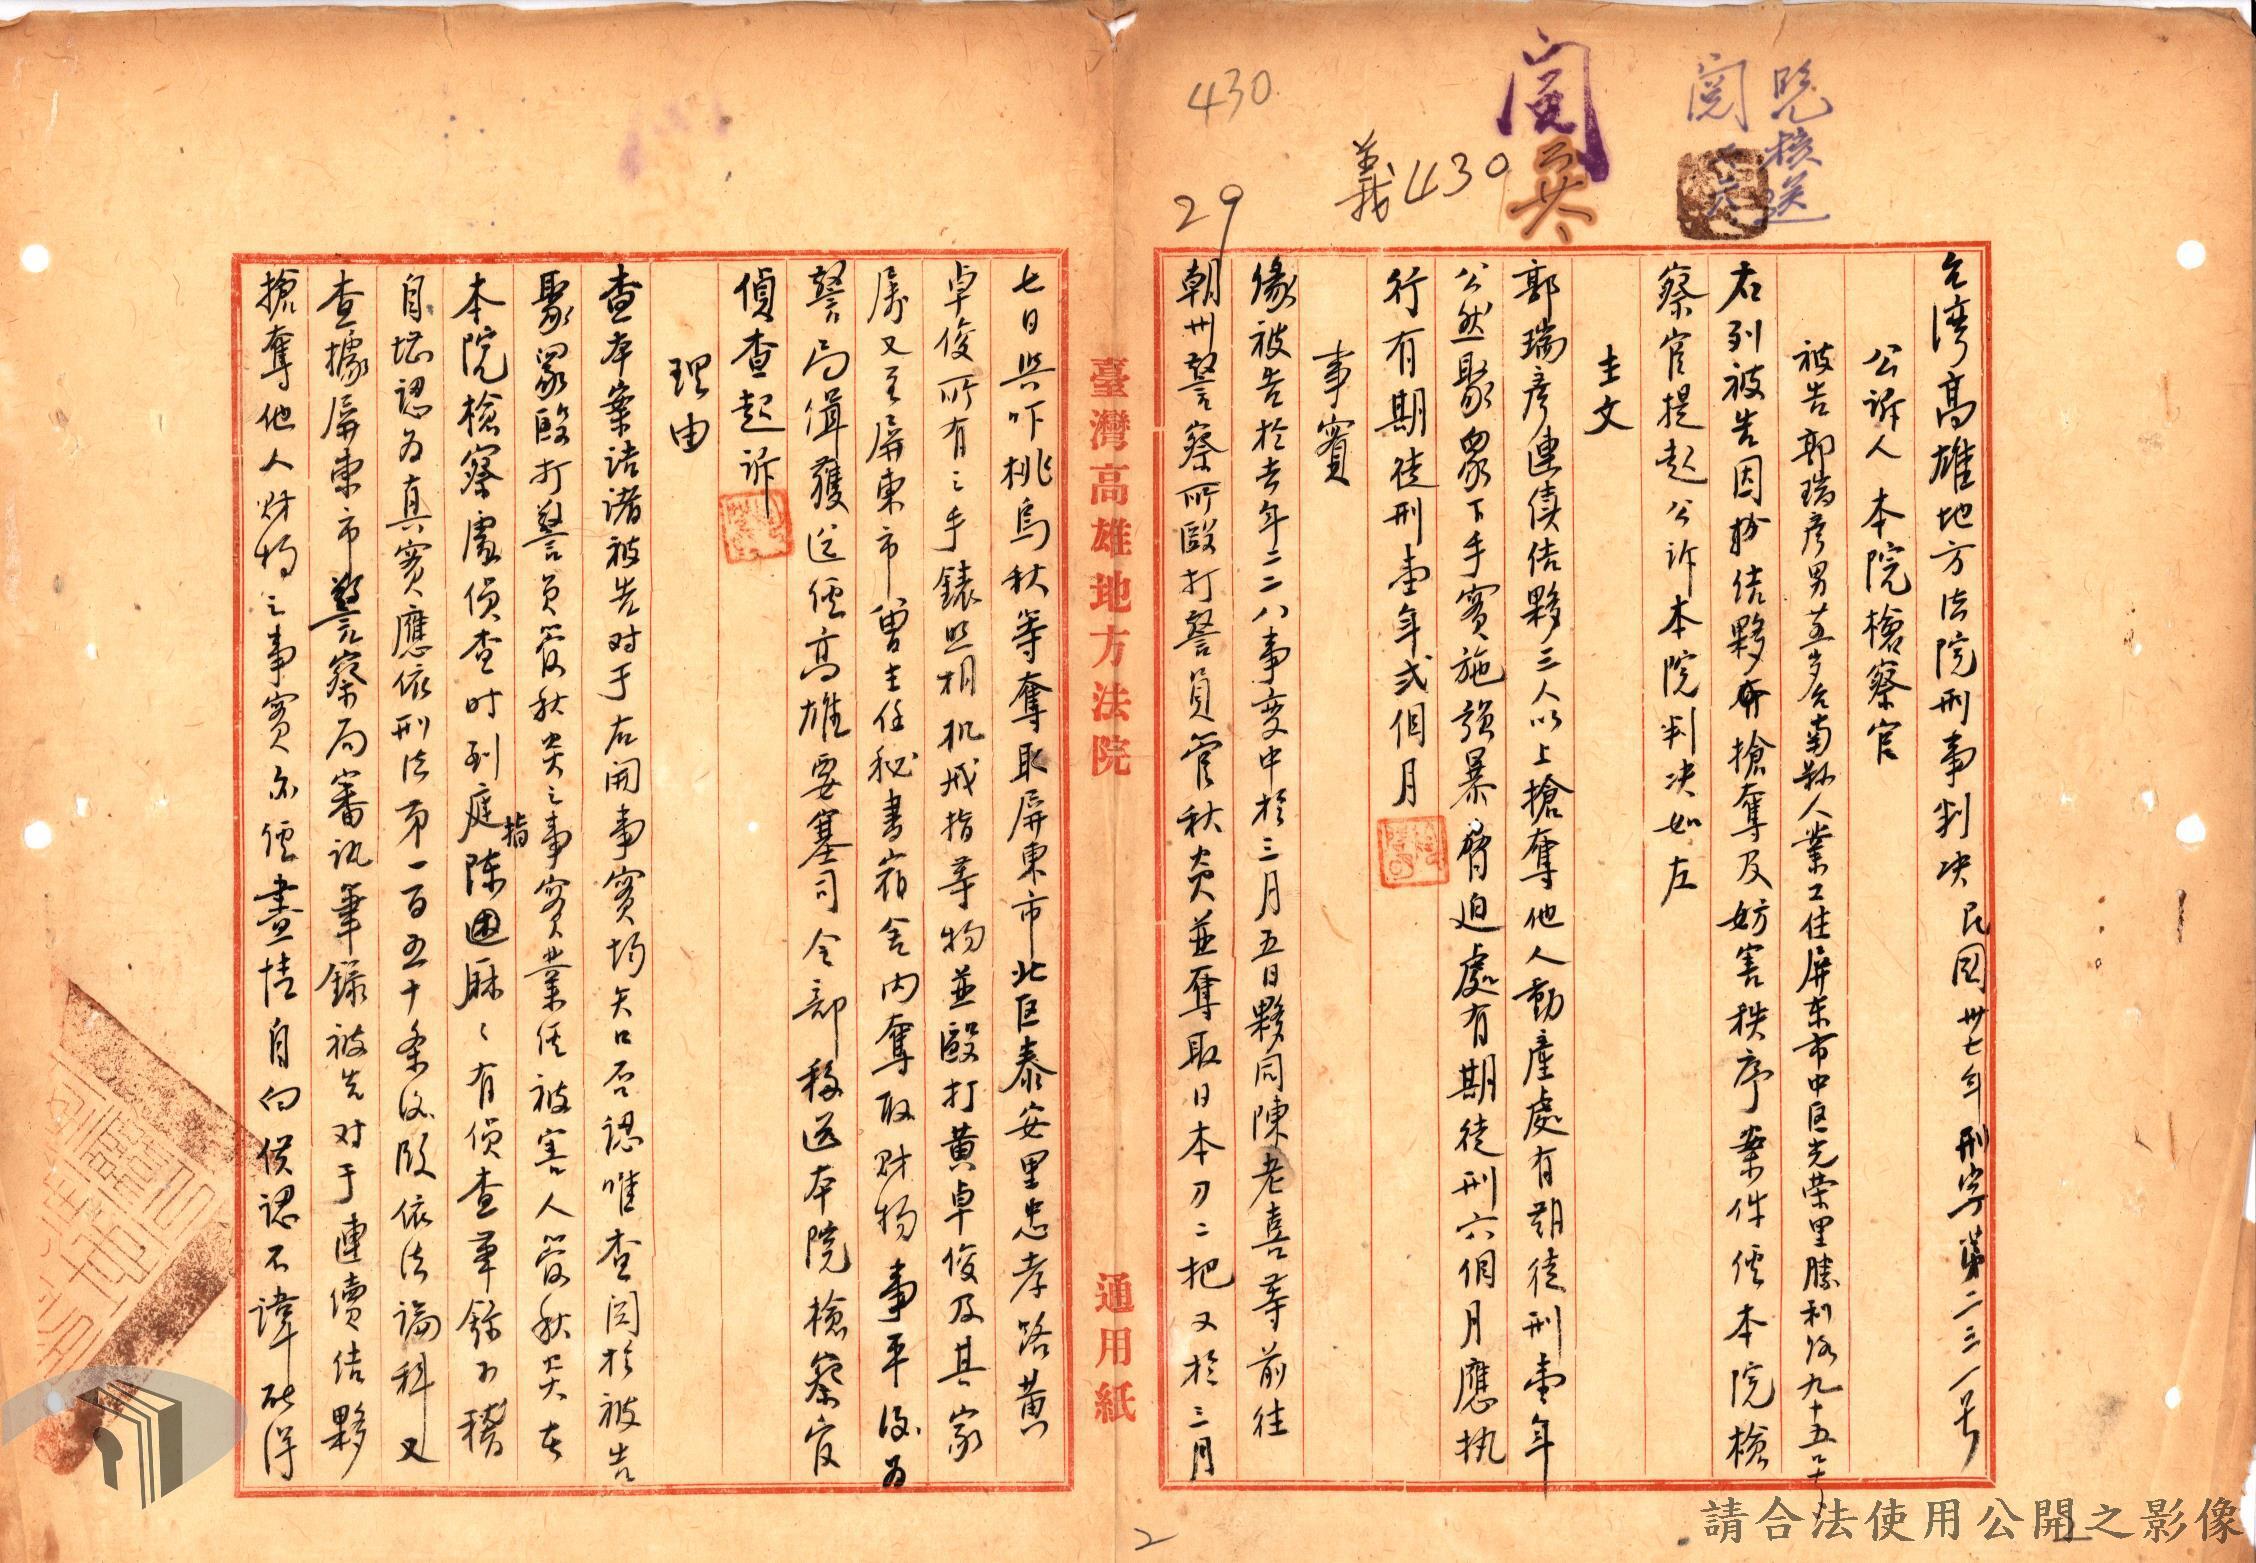 430
閱
閱
覧
核送
義430
29
台湾高雄地方法院刑事判决 民国卅七年刑字第二三一号
公訴人 本院檢察官
被告 郭瑞彦 男 岁台南縣人業工住屏东市中区光荣里勝利路九十五
右列被告因結夥搶奪及妨害秩序案件經本院檢
察官提起公诉本院判决如左
主文
郭瑞彦連續结夥三人以上搶奪他人動產處有期徒刑壹年
公然聚眾下手實施強暴脅迫處有期徒刑六個月應执
行有期徒刑壹年弍個月
事實
缘被告於去年二二八事变中於三月五日夥同陳老喜等前往
朝州警察所毆打警員管秋炎並奪取日本刀二把又於三月
臺灣高雄地方法院
通用紙
七日與吓桃烏秋等奪取屏東市北区泰安里忠孝路黄
卓俊所有之手錶照相机戒指等物並毆打黄卓俊及其家
属又至屏東市曾主任秘書宿舍内奪取財物事平後为
警局缉獲送經高雄要塞司令部移送本院檢察官
偵查起訴
理由
查本案诘诸被告对于右開事實均矢口否認唯查関於被告
聚眾毆打警員管秋炎之事實業经被害人管秋炎在
本院檢察處偵查时到庭指陳歷歷有偵查筆錄可稽
自堪認为真實應依刑法第一百五十条後段依法論科又
查據屏東市警察局審訊筆錄被告对于連續结夥
搶奪他人财物之事實亦經盡情自白供認不諱
2
請合法使用公開之影像